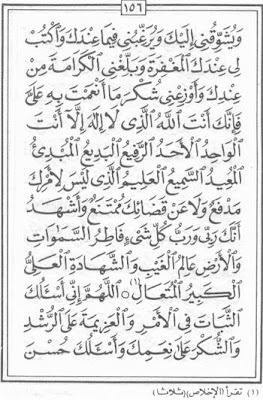 ١٥٦
وَيُشَوِّقُنِي إِلَيْكَ وَيُرَغِّبُنِي فِيمَا عِنْدَكَ وَأَكْتُبْ
لِي عِنْدَكَ الْمَغْفِرَةَ وَبَلِّغْنِي الْكَرَامَةَ مِنْ
عِنْدِكَ وَأَوْزِعْنِي شُكْرَ مَا أَنْعَمْتَ بِهِ عَلَيَّ
فَإِنَّكَ أَنْتَ اللَّهُ الَّذِي لَا إِلَهَ إِلَّا أَنْتَ
الْوَاحِدُ الْأَحَدُ الرَّفِيعُ الْبَدِيعُ الْمُبْدِئُ
الْمُعِيدُ السَّمِيعُ الْعَلِيمُ الَّذِي لَيْسَ لِأَمْرِكَ
مَدْفَعٌ وَلَا عَنْ قَضَائِكَ مُمْتَنَعٌ وَأَشْهَدُ
أَنَّكَ رَبِّي وَرَبُّ كُلِّ شَيْءٍ فَاطِرُ السَّمَوَاتِ
وَالْأَرْضِ عَالِمُ الْغَيْبِ وَالشَّهَادَةِ الْعَلِيُّ
الْكَبِيرُ الْمُتَعَالُ (١) اللَّهُمَّ إِنِّي أَسْئَلُكَ
الثَّبَاتَ فِي الْأَمْرِ وَالْعَزِيمَةَ عَلَى الرُّشْدِ
وَالشُّكْرَ عَلَى نِعَمِكَ وَأَسْئَلُكَ حُسْنَ
(١) تقرأ (الإخلاص) (ثلاثا)